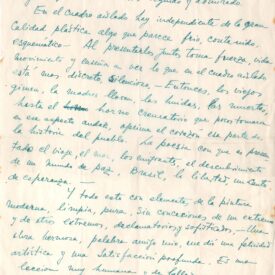 En el cuadro aislado hay independiente de la gran
calidad plástica algo que parece frío, contenido,
esquemático. Al presentarlos juntos toma fuerza, vida,
movimiento y emoción a ver lo que en el cuadro aislado
está mas discreto, silencioso.— Entonces, los viejos
gimen, las madres lloran, los heridos, los muertos,
hasta el horno crematorio que posiblemente
en ese aspecto anida, oprime el corazón ese parte de
la historia del pueblo. La poesía con que es presen-
tado el viaje, el mar, los emigrantes, el descubrimiento
de un mundo de paz, Brasil, la libertad un canto
de esperanza.—
Y todo esto con elementos de la pintura
moderna, limpia, pura, sin concesiones de un extremo
y de otros extremos, declamatorios y sofisticados.— Una
obra hermosa, palabra amigo mío, me dió una felicidad
artística y una satisfacción profunda. Es una
lección muy humana y de